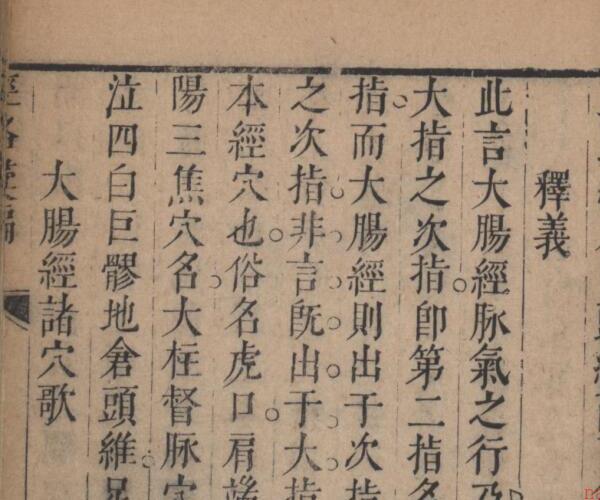 釋義
此言大腸經脉氣之行乃
大指之次指卽第二指名
指而大腸經則出于次指
之次指非言旣出于大指
本經穴也俗名虎口肩
陽三焦穴名大柱督脉
泣四白巨髎地倉頭維
大腸經諸穴歌
經絡彙編